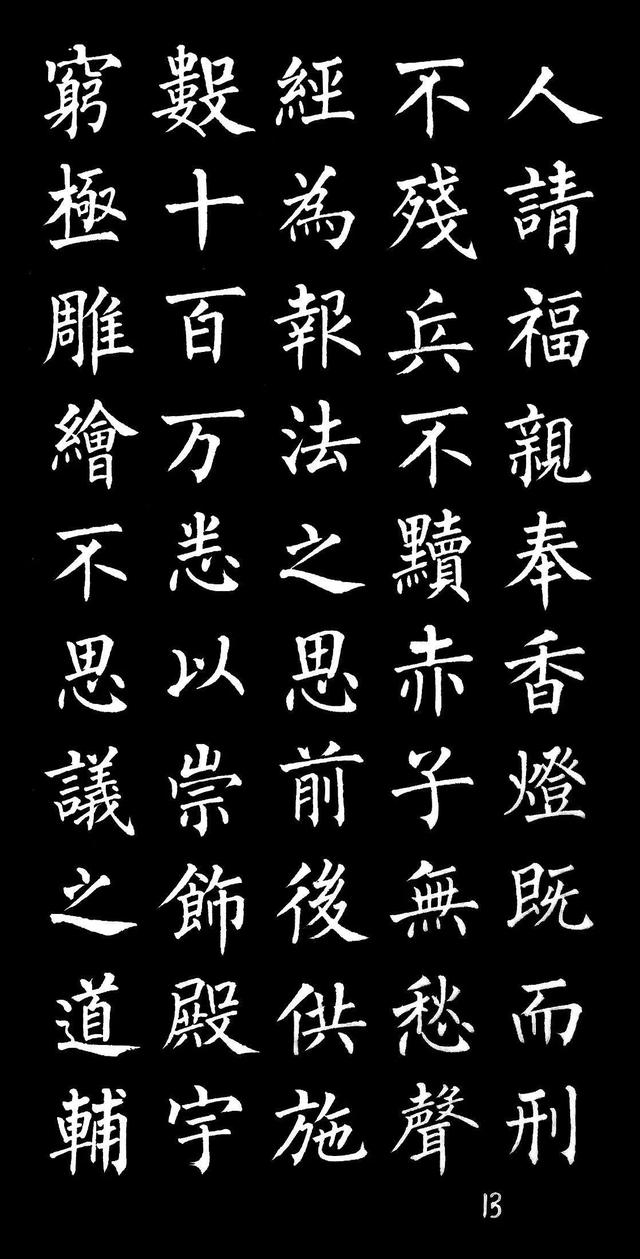 人請福親奉香燈既而刑
不殘兵不黷赤子無愁聲
經為報法之思前後供施
數十百万悉以崇飾殿宇
窮極雕繪不思議之道輔
13